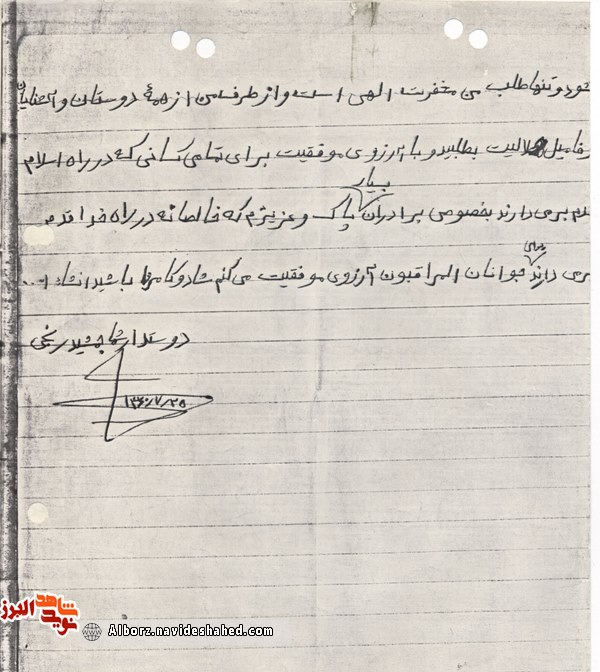 خود و تنها طلب من مغفرت الهی است و از طرف من از همهٔ دوستان و آشنایان
و فامیل حلالیت بطلبید و با آرزوی موفقیت برای تمامی کسانی که در راه اسلام
بسیار
قدم برمی دارند بخصوص برادران پاک و عزیزم که خالصانه در راه خدا قدم
برای
برمی دارند جوانان المراقبون آرزوی موفقیت می کنم شاد و کامروا باشید انشاء ا...
دوستدار شما جمشید رنجی
۱۳۶۰/۷/۲۵
شاهد
نوید البرز
Alborz.navideshahed.com